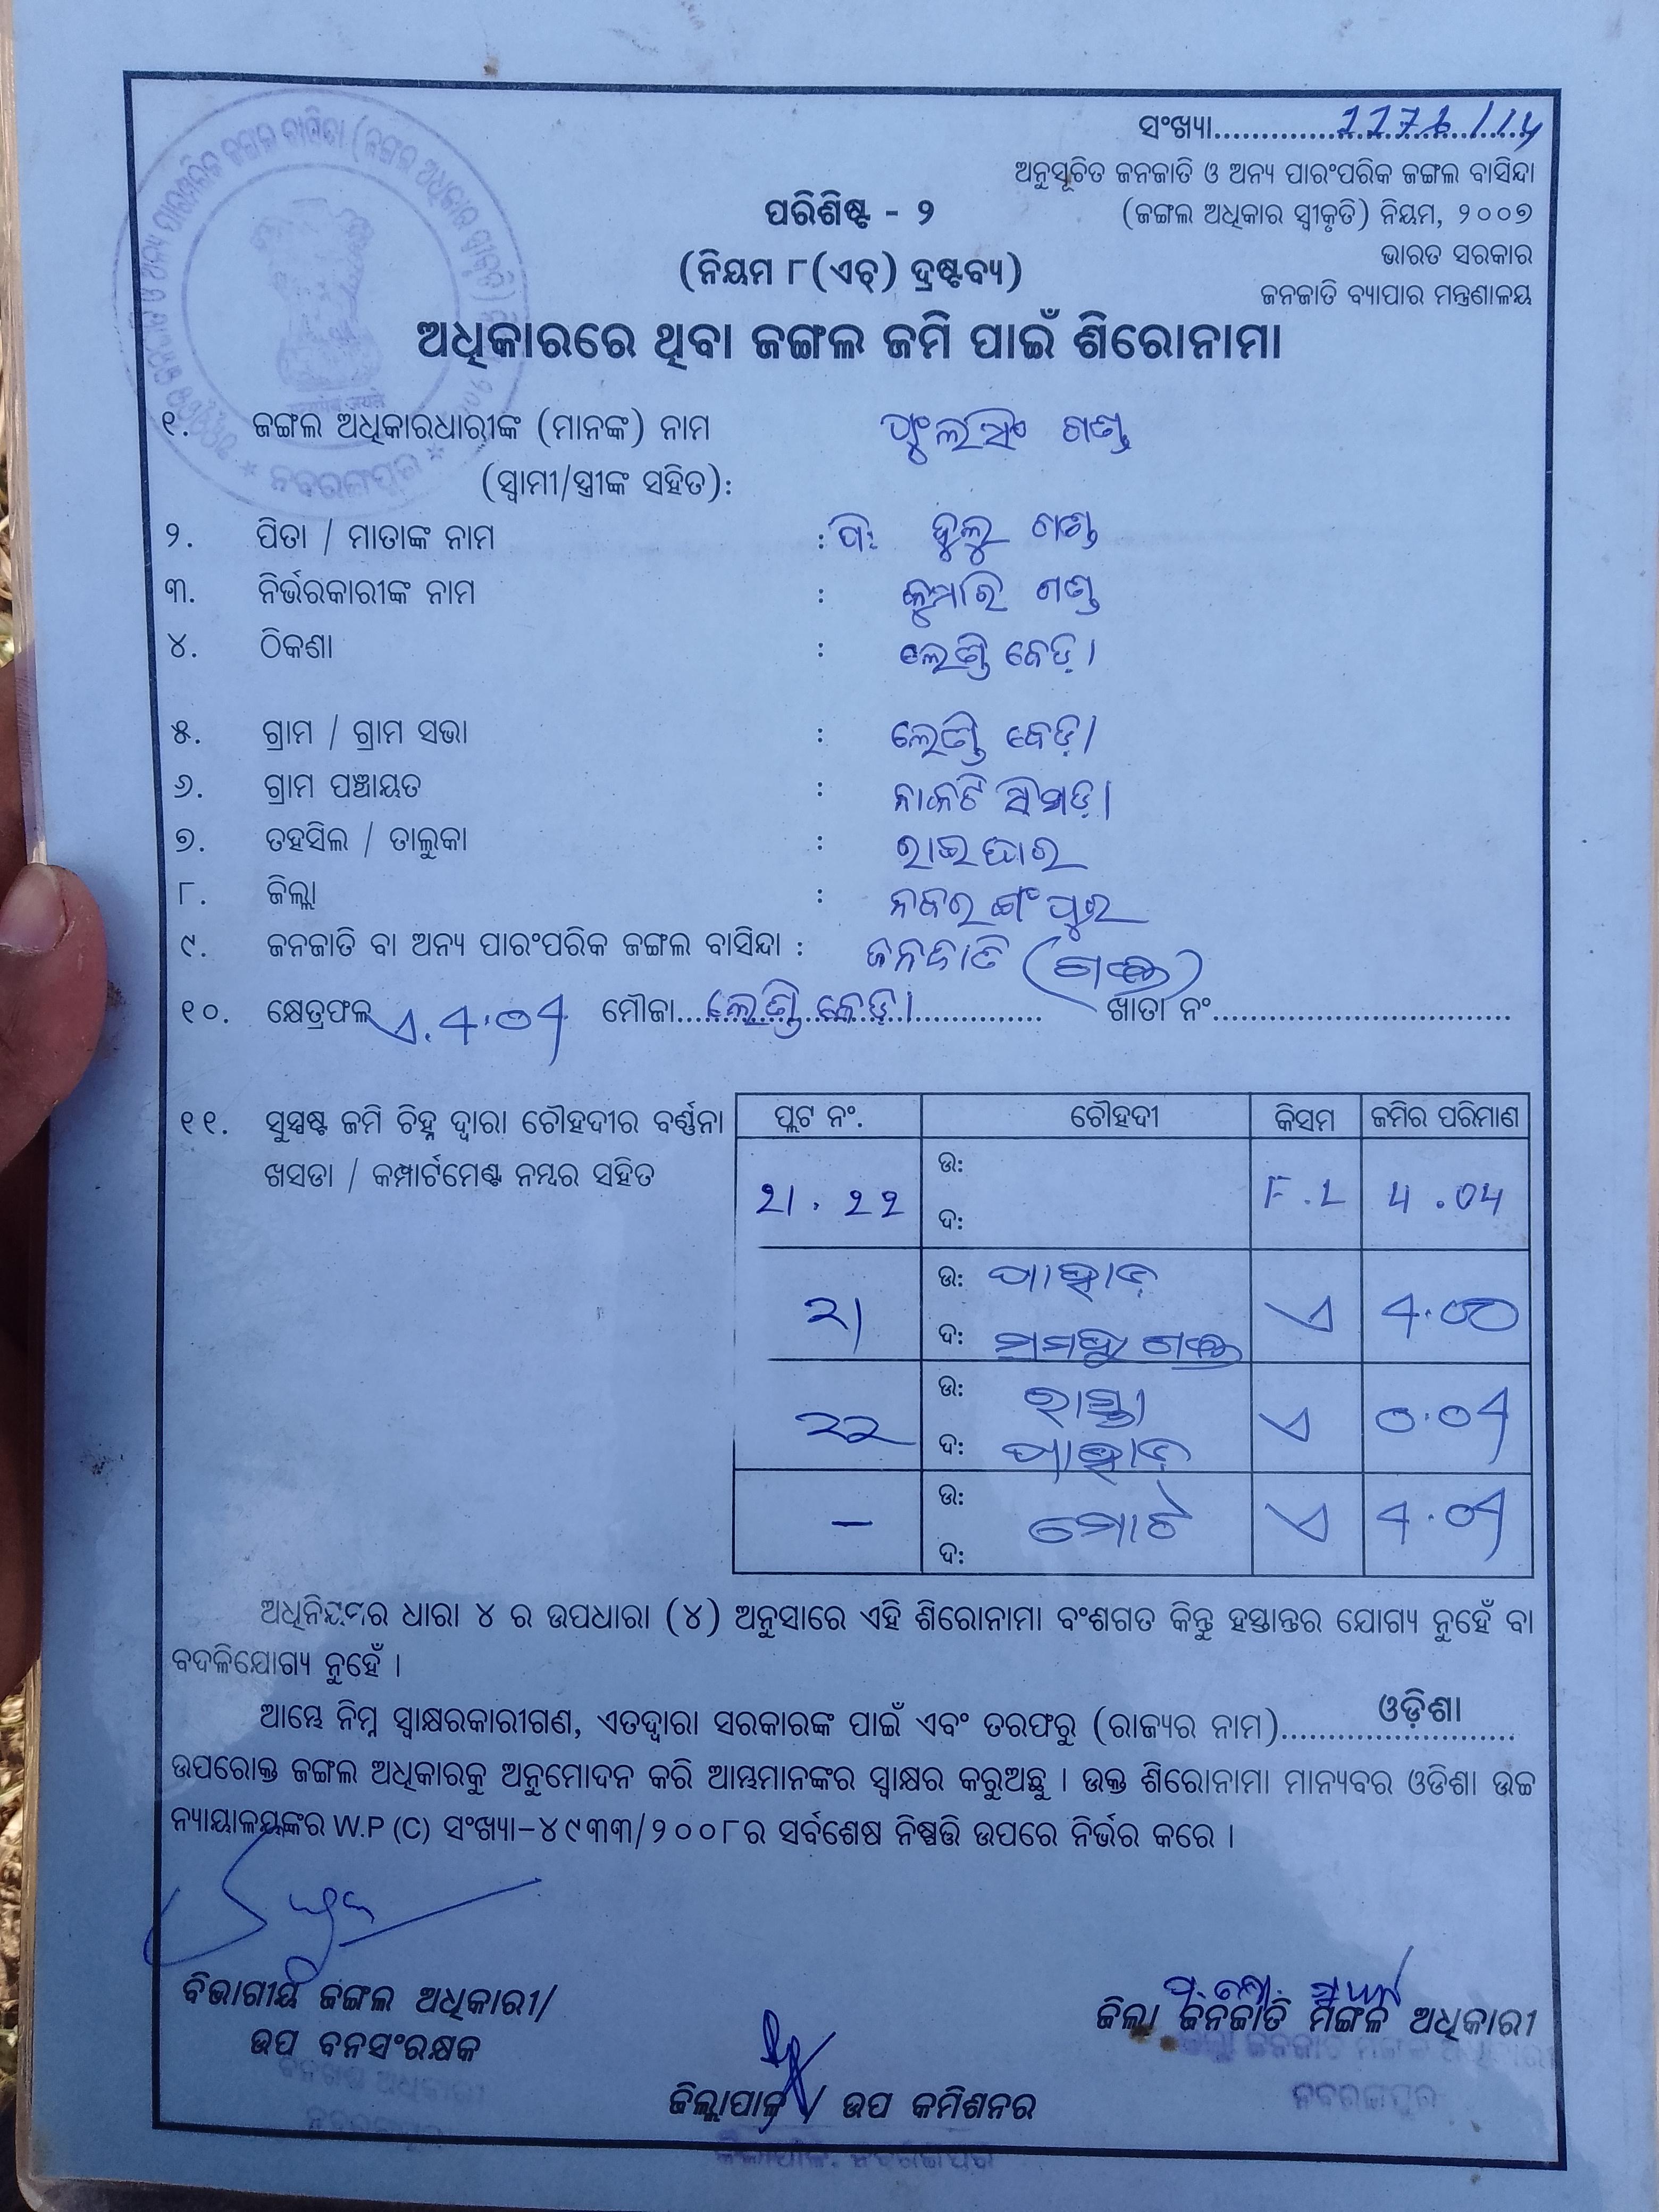 ସଂଖ୍ୟା
ଅନୁସୂଚିତ ଜନଜାତି ଓ ଅନ୍ୟ ପାରଂପରିକ ଜଙ୍ଗଲ ବାସିନ୍ଦା
(ଜଙ୍ଗଲ ଅଧିକାର ସ୍ୱୀକୃତି) ନିୟମ, ୨୦୦୭
ଭାରତ ସରକାର
ଜନଜାତି ବ୍ୟାପାର ମନ୍ତ୍ରଣାଳୟ
ପରିଶିଷ୍ଟ - ୨
(ନିୟମ ୮(ଏଚ୍) ଦ୍ରଷ୍ଟବ୍ୟ)
ଅଧିକାରରେ ଥିବା ଜଙ୍ଗଲ ଜମି ପାଇଁ ଶିରୋନାମା
୧. ଜଙ୍ଗଲ ଅଧିକାରଧାରୀଙ୍କ (ମାନଙ୍କ) ନାମ ଫୁଲସିଂ ଗଣ୍ଡ
(ସ୍ୱାମୀ/ସ୍ତ୍ରୀଙ୍କ ସହିତ):
୨. ପିତା / ମାତାଙ୍କ ନାମ : ପି: ଗଣ୍ଡ
୩. ନିର୍ଭରକାରୀଙ୍କ ନାମ : କୁମାରି ଗଣ୍ଡ
୪. ଠିକଣା : ଲେଣ୍ଡି ବେଡ଼ା
୫. ଗ୍ରାମ / ଗ୍ରାମ ସଭା : ଲେଣ୍ଡି ବେଡ଼ା
୬. ଗ୍ରାମ ପଞ୍ଚାୟତ :
୭. ତହସିଲ / ତାଲୁକା : ରାଇଘର
୮. ଜିଲ୍ଲା : ନବରଙ୍ଗପୁର
୯. ଜନଜାତି ବା ଅନ୍ୟ ପାରଂପରିକ ଜଙ୍ଗଲ ବାସିନ୍ଦା : ଜନଜାତି (ଗଣ୍ଡ)
୧୦. କ୍ଷେତ୍ରଫଳ ଏ.୪.୦୪ ମୌଜା ଲେଣ୍ଡି ବେଡ଼ା ଖାତା ନଂ
୧୧. ସୁସ୍ପଷ୍ଟ ଜମି ଚିହ୍ନ ଦ୍ୱାରା ଚୌହଦୀର ବର୍ଣ୍ଣନା
ଖସଡା / କମ୍ପାର୍ଟମେଣ୍ଟ ନମ୍ବର ସହିତ
ପ୍ଲଟ ନଂ. ଚୌହଦୀ କିସମ ଜମିର ପରିମାଣ
21. 22 ଉ: ଦ: F.L 4.04
୨୧ ଉ: ପାହାଡ଼ ଏ ୪.୦୦
ଦ: ଗଣ୍ଡ
୨୨ ଉ: ରାସ୍ତା ଏ ୦.୦୪
ଦ: ପାହାଡ଼
- ଉ: ମୋଟ ଏ ୪.୦୪
ଦ:
ଅଧିନିୟମର ଧାରା ୪ ର ଉପଧାରା (୪) ଅନୁସାରେ ଏହି ଶିରୋନାମା ବଂଶଗତ କିନ୍ତୁ ହସ୍ତାନ୍ତର ଯୋଗ୍ୟ ନୁହେଁ ବା
ବଦଳିଯୋଗ୍ୟ ନୁହେଁ ।
ଆମ୍ଭେ ନିମ୍ନ ସ୍ୱାକ୍ଷରକାରୀଗଣ, ଏତଦ୍ୱାରା ସରକାରଙ୍କ ପାଇଁ ଏବଂ ତରଫରୁ (ରାଜ୍ୟର ନାମ) ଓଡ଼ିଶା
ଉପରୋକ୍ତ ଜଙ୍ଗଲ ଅଧିକାରକୁ ଅନୁମୋଦନ କରି ଆମ୍ଭମାନଙ୍କର ସ୍ୱାକ୍ଷର କରୁଅଛୁ । ଉକ୍ତ ଶିରୋନାମା ମାନ୍ୟବର ଓଡିଶା ଉଚ୍ଚ
ନ୍ୟାୟାଳୟଙ୍କର W.P (C) ସଂଖ୍ୟା-୪୯୩୩/୨୦୦୮ର ସର୍ବଶେଷ ନିଷ୍ପତ୍ତି ଉପରେ ନିର୍ଭର କରେ ।
ବିଭାଗୀୟ ଜଙ୍ଗଲ ଅଧିକାରୀ/
ଉପ ବନସଂରକ୍ଷକ
ଜିଲ୍ଲା ଜନଜାତି ମଙ୍ଗଳ ଅଧିକାରୀ
ନବରଙ୍ଗପୁର
ଜିଲ୍ଲାପାଳ / ଉପ କମିଶନର